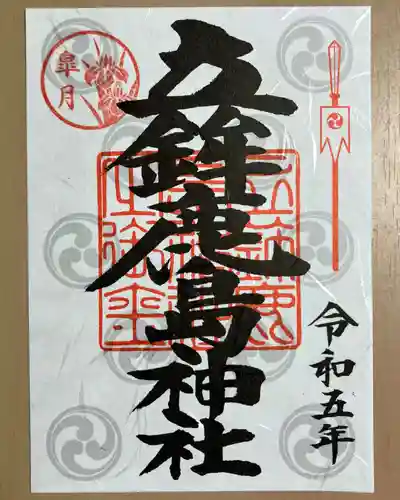 皐月
五鉾鹿島神社
令和五年